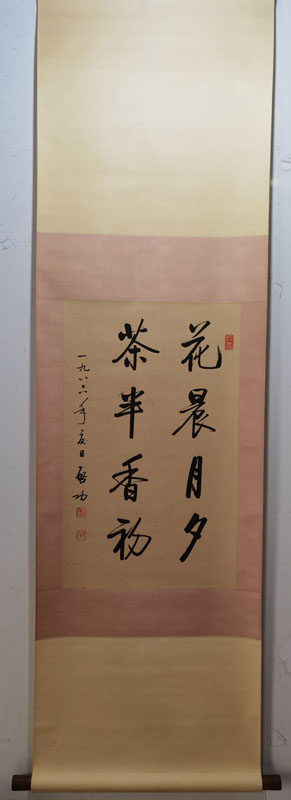 花晨月夕
茶半香初
一九八六年夏日 啓功